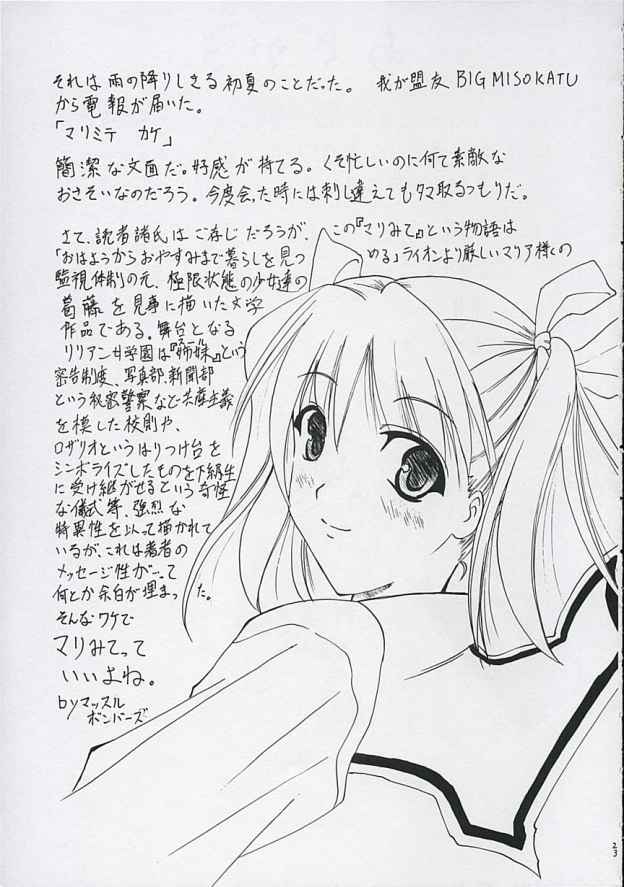 それは雨の降りしきる初夏のことだった。 我が盟友 BIG MISOKATU
から電報が届いた。
「マリミテ カケ」
簡潔な文面だ。好感が持てる。くそ忙しいのに何て素敵な
おさそいなのだろう。今度会った時には刺し違えてもタマ取るつもりだ。
さて、読者諸氏はご存じだろうが、この『マリみて』という物語は
「おはようからおやすみまで暮らしを見つめる」ライオンより厳しいマリア様の
監視体制の元、極限状態の少女達の
葛藤を見事に描いた文学
作品である。舞台となる
リリアン女学園は『姉妹』という
密告制度、写真部、新聞部
という秘密警察など共産主義
を模した校則や、
ロザリオというはりつけ台を
シンボライズしたものを下級生
に受け継がせるという奇怪
な儀式等、強烈な
特異性を以って描かれて
いるが、これは著者の
メッセージ性が…って
何とか余白が埋まった。
そんなワケで
マリみてって
いいよね。
byマッスル
ボンバーズ
23